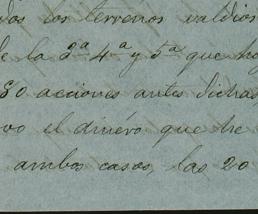 dos los terrenos valdios
de la 2ª 4ª y 5ª que ho
80 acciones antes dichas
vo el dinéro que he
ambos casos, las 20